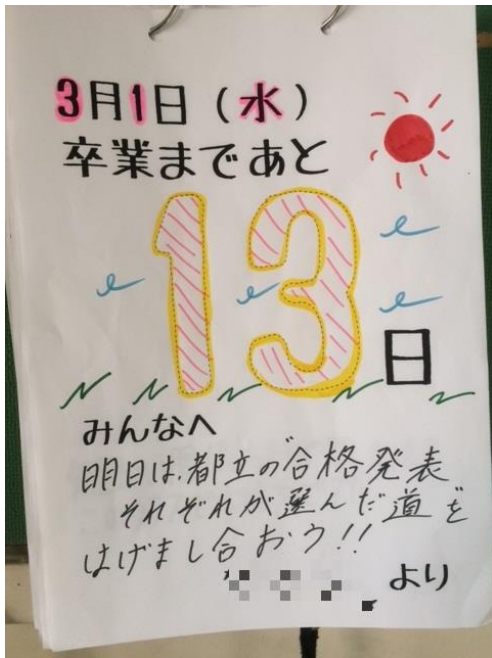 3月1日(水)
卒業まであと
13日
みんなへ
明日は、都立の合格発表
それぞれが選んだ道を
はげまし合おう!!
より